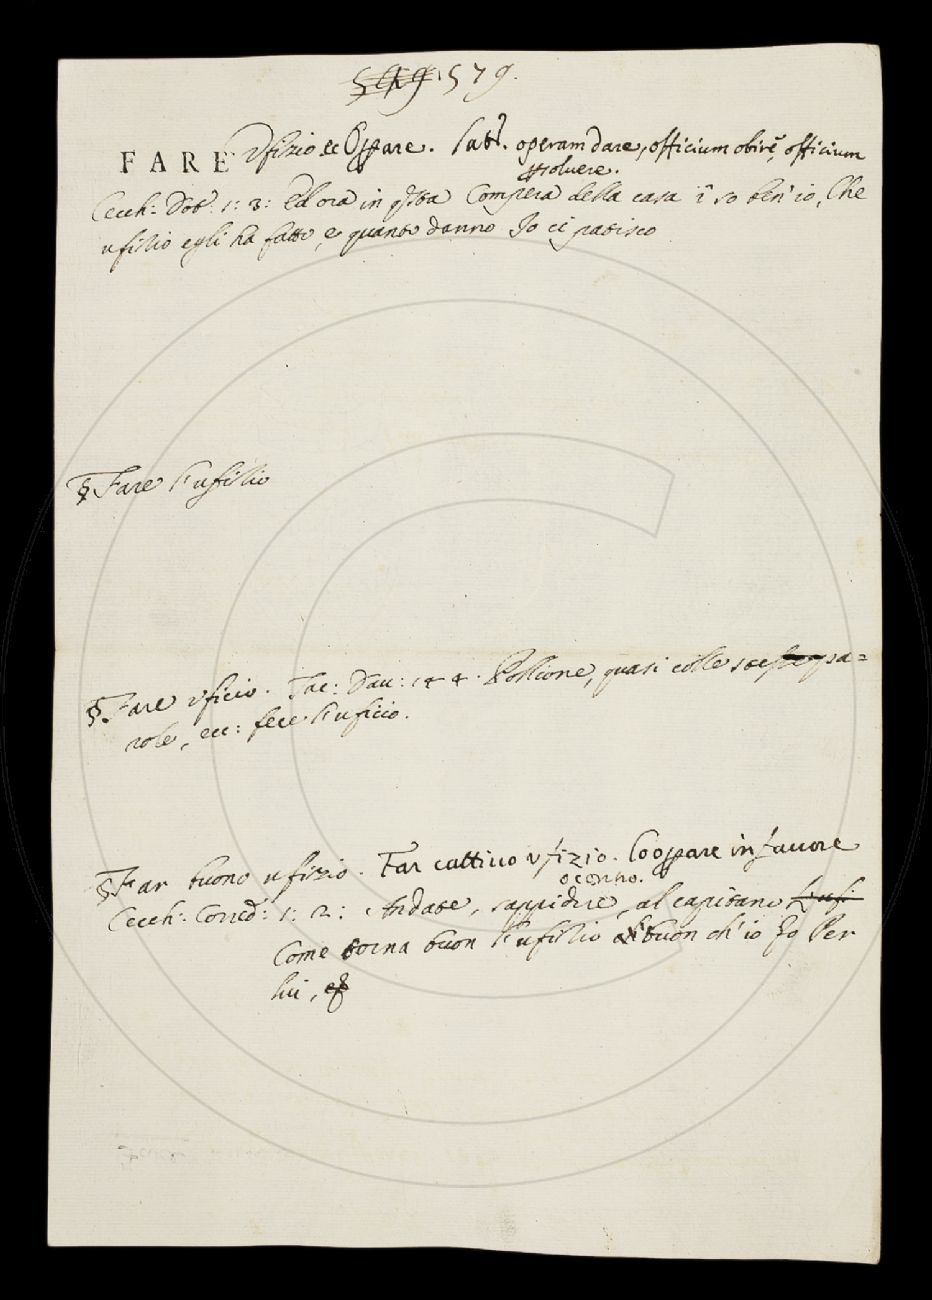 579.
FARE Vfizio Opare. Lat. operam dare, officium obire, officium
soluere.
Cecch: Dot: 1: 3: Ed ora in qsta Compera della casa so ben' io, Che
ufizio egli ha fatto, e quanto danno Io ci patisco
§ Fare l'ufizio
§ Fare vficio. Tac: Dau: 144. Pollione, quasi colle pa=
role, ecc: fece l'uficio.
§ Far buono ufizio. Far cattiuo vfizio. Coopare in fauore
o contro.
Cecch: Corred: 1: 2: Andate, al capitano L'ufi
Come torna buon l'ufizio buon ch' io fo Per
lui,